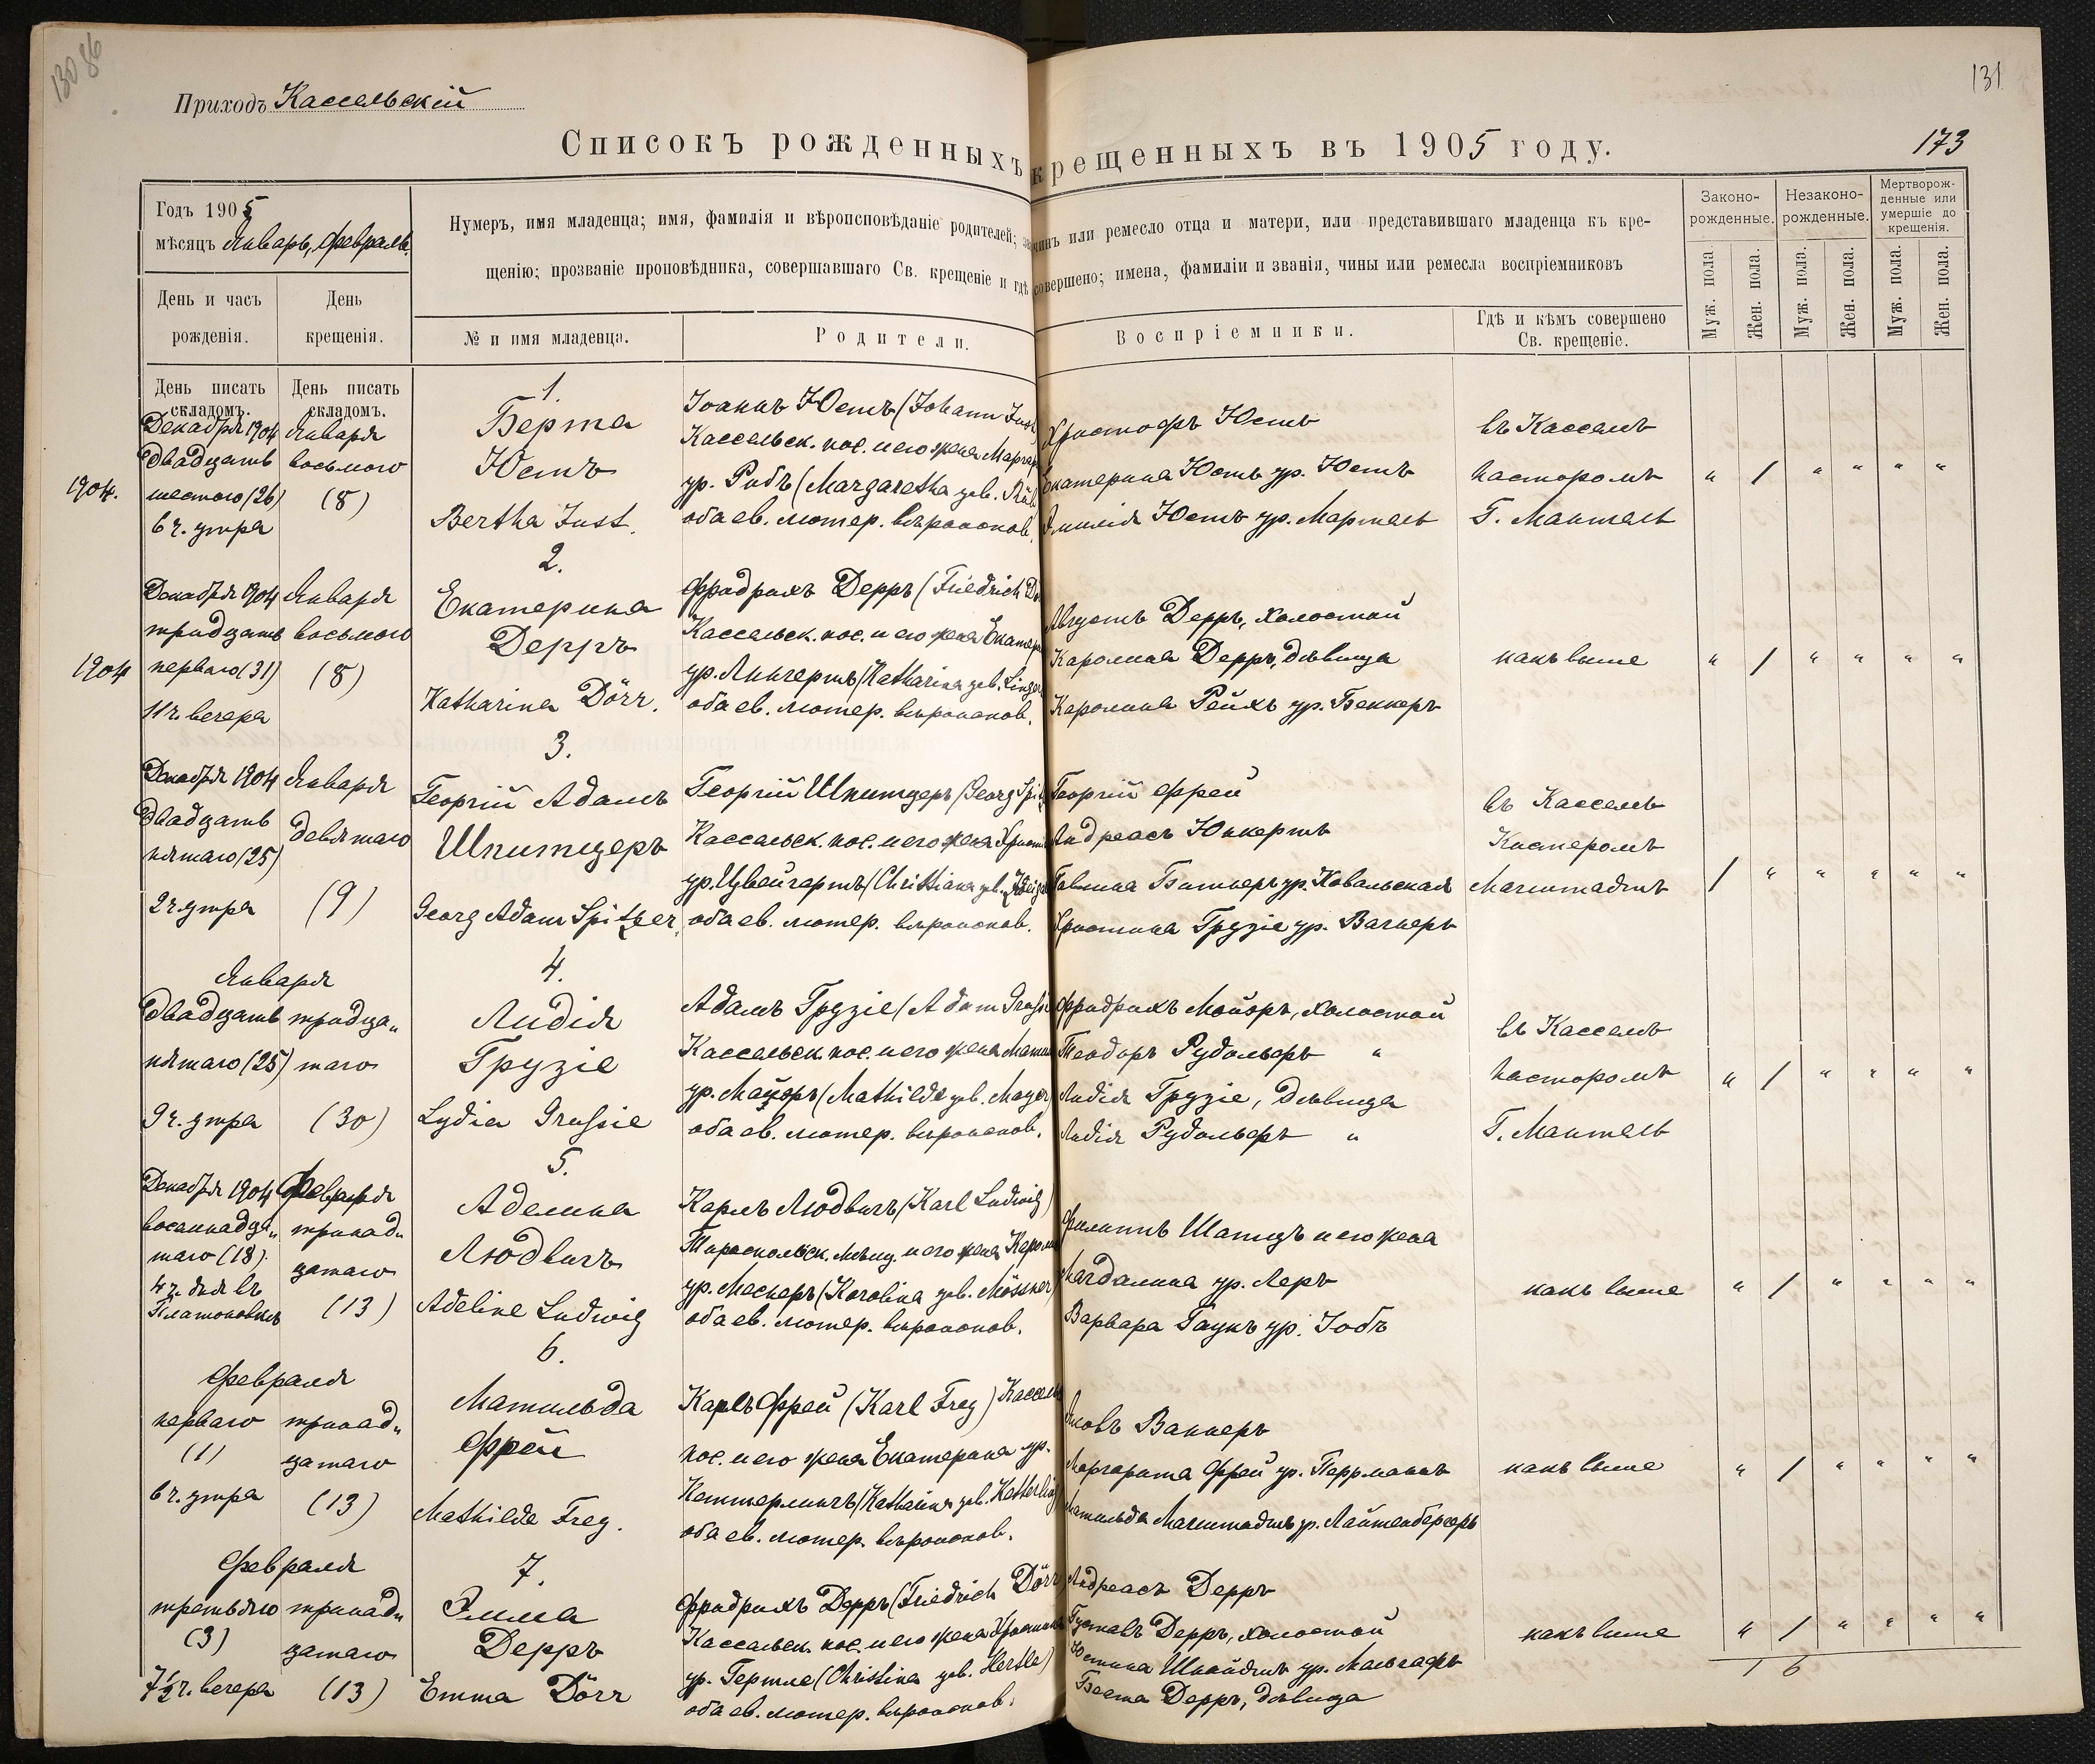 130 86
131
Приходъ Кассельскій
Списокъ рожденныхъ крещенныхъ въ 1905 году.
173
Годъ 1905
мѣсяцъ Январь, Февраль.
Нумеръ, имя младенца; имя, фамилія и вѣроисповѣданіе родителей; чинъ или ремесло отца и матери, или представившаго младенца къ кре-
щенію; прозваніе проповѣдника, совершавшаго Св. крещеніе и гдѣ совершено; имена, фамиліи и званія, чины или ремесла воспріемниковъ
Законо-
рожденные.
Незаконо-
рожденные.
Мертворож-
денные или
умершіе до
крещенія.
День и часъ
рожденія.
День
крещенія.
№ и имя младенца.
Родители.
Воспріемники.
Гдѣ и кѣмъ совершено
Св. крещеніе.
Муж. пола.
Жен. пола.
Муж. пола.
Жен. пола.
Муж. пола.
Жен. пола.
День писать
складомъ.
День писать
складомъ.
1904.
Декабря 1904
двадцать
шестого (26)
6 ч. утра
Января
восьмого
(8)
1.
Берта
Юстъ
Bertha Just.
Іоаннъ Юстъ (Johann Just
Кассельск. пос. и его жена Маргар
ур. Рибъ (Margaretha geb. Rüb
оба ев. лютер. вѣроисповѣд.
Христофъ Юстъ
Екатерина Юстъ ур. Юстъ
Эмилія Юстъ ур. Мартель
въ Касселѣ
пасторомъ
Г. Мантель
" / " " " "
1904
Декабря 1904
тридцать
перваго (31)
11 ч. вечера
Января
восьмого
(8)
2.
Екатерина
Дерръ
Katharina Dörr.
Фридрихъ Дерръ (Friedrich Dö
Кассельск. пос. и его жена Екатер
ур. Лингертъ (Katharina geb. Linger
оба ев. лютер. вѣроисповѣд.
Августъ Дерръ, холостой
Каролина Дерръ, дѣвица
Каролина Рейхъ ур. Беккеръ
какъ выше
" / " " " "
Декабря 1904
двадцать
пятаго (25)
2 ч. утра
Января
девятаго
(9)
3.
Георгій Адамъ
Шпитцеръ
Georg Adam Spitzer.
Георгій Шпитцеръ (Georg Spi
Кассельск. пос. и его жена Христ
ур. Цвейгартъ (Christiana geb. Zweiga
оба ев. лютер. вѣроисповѣд.
Георгій Фрей
Андреасъ Юнкертъ
Павлина Битнеръ ур. Ковальская
Христина Грузіе ур. Вагнеръ
въ Касселѣ
Кистеромъ
Магштадтъ
/ " " " " "
Января
двадцать
пятаго (25)
9 ч. утра
тридца„
таго
(30)
4.
Лидія
Грузіе
Lydia Grussie
Адамъ Грузіе (Adam Grussie
Кассельск. пос. и его жена Матил
ур. Майоръ (Mathilde geb. Mayer)
оба ев. лютер. вѣроисповѣд.
Фридрихъ Майоръ, холостой
Теодоръ Рудольфъ "
Лидія Грузіе, дѣвица
Лидія Рудольфъ "
въ Касселѣ
пасторомъ
Г. Мантель
" / " " " "
Декабря 1904
восемнадца„
таго (18)
4 ч. дня въ
Платоновкѣ
Февраля
тринад„
цатаго
(13)
5.
Аделина
Людвигъ
Adeline Ludwig
Карлъ Людвигъ (Karl Ludwig)
Тираспольск. мѣщ. и его жена Кароли
ур. Меснеръ (Karolina geb. Mössner)
оба ев. лютер. вѣроисповѣд.
Филиппъ Шатцъ и его жена
Магдалина ур. Леръ
Варвара Гаукъ ур. Іобъ
какъ выше
" / " " " "
Февраля
перваго
(1)
6 ч. утра
тринад„
цатаго
(13)
6.
Матильда
Фрей
Mathilde Frey.
Карлъ Фрей (Karl Frey) Кассель
пос. и его жена Екатерина ур.
Кеттерлингъ (Katharina geb. Ketterling
оба ев. лютер. вѣроисповѣд.
Яковъ Ваннеръ
Маргарита Фрей ур. Перрманнъ
Матильда Магштадтъ ур. Лайтенбергеръ
какъ выше
" / " " " "
Февраля
третьяго
(3)
7½ ч. вечера
тринад„
цатаго
(13)
7.
Эмма
Дерръ
Emma Dörr
Фридрихъ Дерръ (Friedrich Dörr
Кассельск. пос. и его жена Христина
ур. Гертле (Christina geb. Hertle)
оба ев. лютер. вѣроисповѣд.
Андреасъ Дерръ
Густавъ Дерръ, холостой
Юстина Шнайдтъ ур. Мальгафъ
Беата Дерръ, дѣвица
какъ выше
" / " " " "
1 6